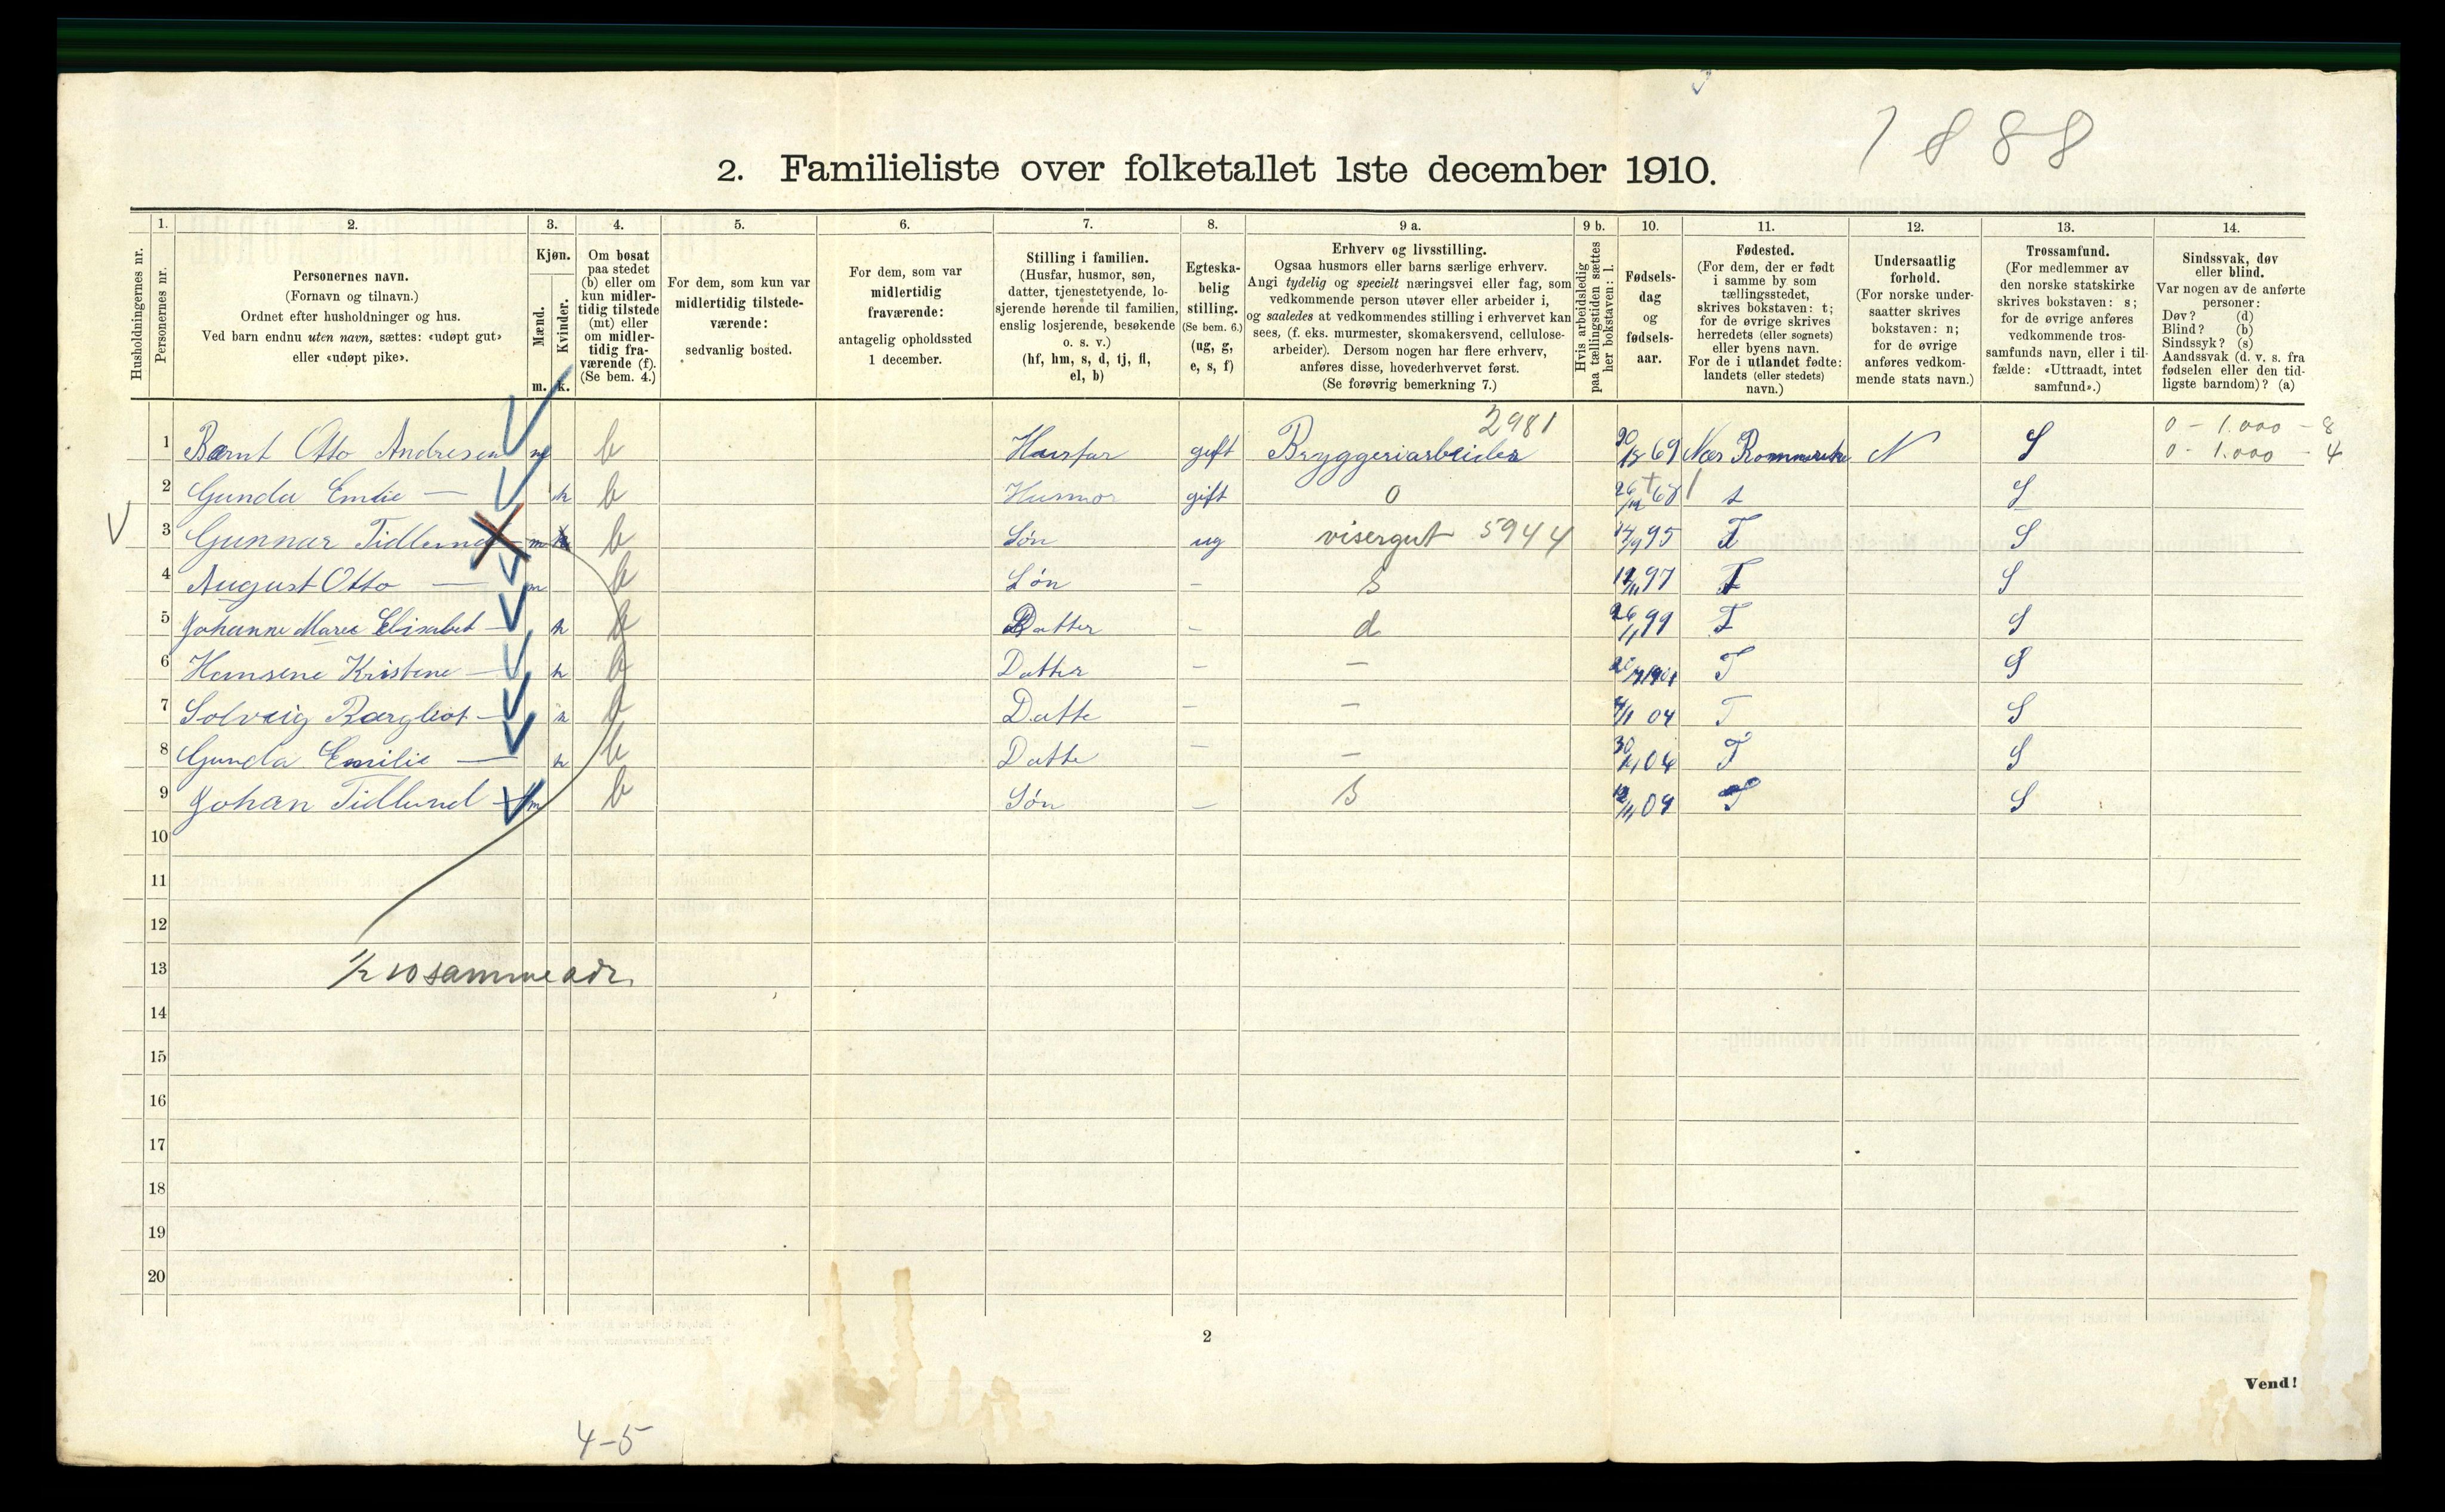 1888
2. Familieliste over folketallet 1ste december 1910.
Husholdningernes nr.
1. Personernes nr.
2. Personernes navn. (Fornavn og tilnavn.) Ordnet efter husholdninger og hus. Ved barn endnu uten navn, sættes: «udøpt gut» eller «udøpt pike».
3. Kjøn. Mænd. m. Kvinder. k.
4. Om bosat paa stedet (b) eller om kun midlertidig tilstede (mt) eller om midlertidig fraværende (f). (Se bem. 4.)
5. For dem, som kun var midlertidig tilstedeværende: sedvanlig bosted.
6. For dem, som var midlertidig fraværende: antagelig opholdssted 1 december.
7. Stilling i familien. (Husfar, husmor, søn, datter, tjenestetyende, losjerende hørende til familien, enslig losjerende, besøkende o. s. v.) (hf, hm, s, d, tj, fl, el, b)
8. Egteskabelig stilling. (Se bem. 6.) (ug, g, e, s, f)
9 a. Erhverv og livsstilling. Ogsaa husmors eller barns særlige erhverv. Angi tydelig og specielt næringsvei eller fag, som vedkommende person utøver eller arbeider i, og saaledes at vedkommendes stilling i erhvervet kan sees, (f. eks. murmester, skomakersvend, cellulosearbeider). Dersom nogen har flere erhverv, anføres disse, hovederhvervet først. (Se forøvrig bemerkning 7.)
9 b. Hvis arbeidsledig paa tællingstiden sættes her bokstaven: l.
10. Fødselsdag og fødselsaar.
11. Fødested. (For dem, der er født i samme by som tællingsstedet, skrives bokstaven: t; for de øvrige skrives herredets (eller sognets) eller byens navn. For de i utlandet fødte: landets (eller stedets) navn.)
12. Undersaatlig forhold. (For norske undersaatter skrives bokstaven: n; for de øvrige anføres vedkommende stats navn.)
13. Trossamfund. (For medlemmer av den norske statskirke skrives bokstaven: s; for de øvrige anføres vedkommende trossamfunds navn, eller i tilfælde: «Uttraadt, intet samfund».)
14. Sindssvak, døv eller blind. Var nogen av de anførte personer: Døv? (d) Blind? (b) Sindssyk? (s) Aandssvak (d. v. s. fra fødselen eller den tidligste barndom)? (a)
2981 0 - 1.000 - 8
1 Bærnt Otto Andresen m b Husfar gift Bryggeriarbeider 69 Nes Rommerike N S 0 - 1.000 - 4
2 Gunda Emilie — k b Husmor gift 0 t S
3 Gunnar m b Søn ug visergut 5944 14/9 95 T S
4 August Otto — m b Søn - S 97 T S
5 Johanne Marie Elisabet — k b Datter - d 99 T S
6 Hansene Kristene — k b Datter - — T S
7 Solveig Bærgliot — k b Datte - — 04 T S
8 Gunda Emilie — k b Datte - — T S
9 Johan Tidlund — m b Søn - S 09 T S
10
11
12
13 1/2 10 samme adr.
14
15
16
17
18
19
20
2
Vend!
4-5